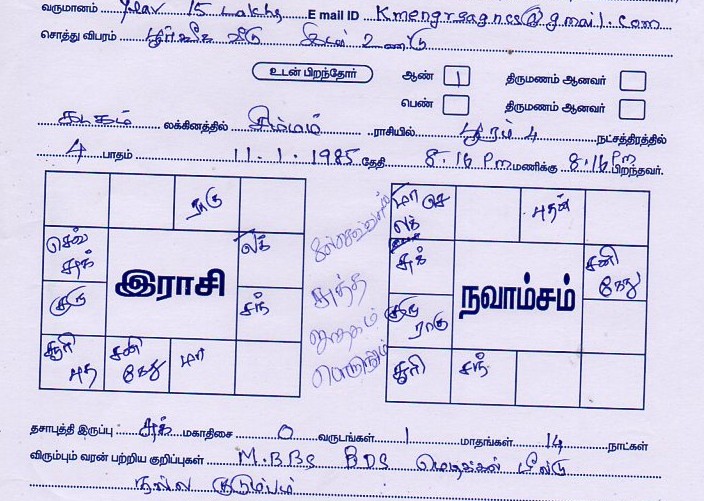 வருமானம் year 15 Lakhs E mail ID Kmengrsagncs@gmail.com
சொத்து விபரம் பூர்வீக வீடு இடம் உண்டு
உடன் பிறந்தோர் ஆண் 1 திருமணம் ஆனவர்
பெண் திருமணம் ஆனவர்
கடகம் லக்கினத்தில் சிம்மம் ராசியில் பூரம் 4 நட்சத்திரத்தில்
4 பாதம் 11.1.1985 தேதி 8.16 Pm மணிக்கு 8.16 Pm பிறந்தவர்.
ராகு
செவ்
சுக்
லக்
குரு
சந்
சூரி
புத
சனி
கேது
மா
இராசி
இந்த
ஜாதகம்
பொருந்தும்
மா செ
லக்
புதன்
சுக்
சனி
கேது
குரு
ராகு
சூரி
சந்
நவாம்சம்
தசாபுத்தி இருப்பு சுக் மகாதிசை 0 வருடங்கள் 1 மாதங்கள் 14 நாட்கள்
விரும்பும் வரன் பற்றிய குறிப்புகள் M.BBS BDS மெடிக்கல் பீல்டு
நல்ல குடும்பம்